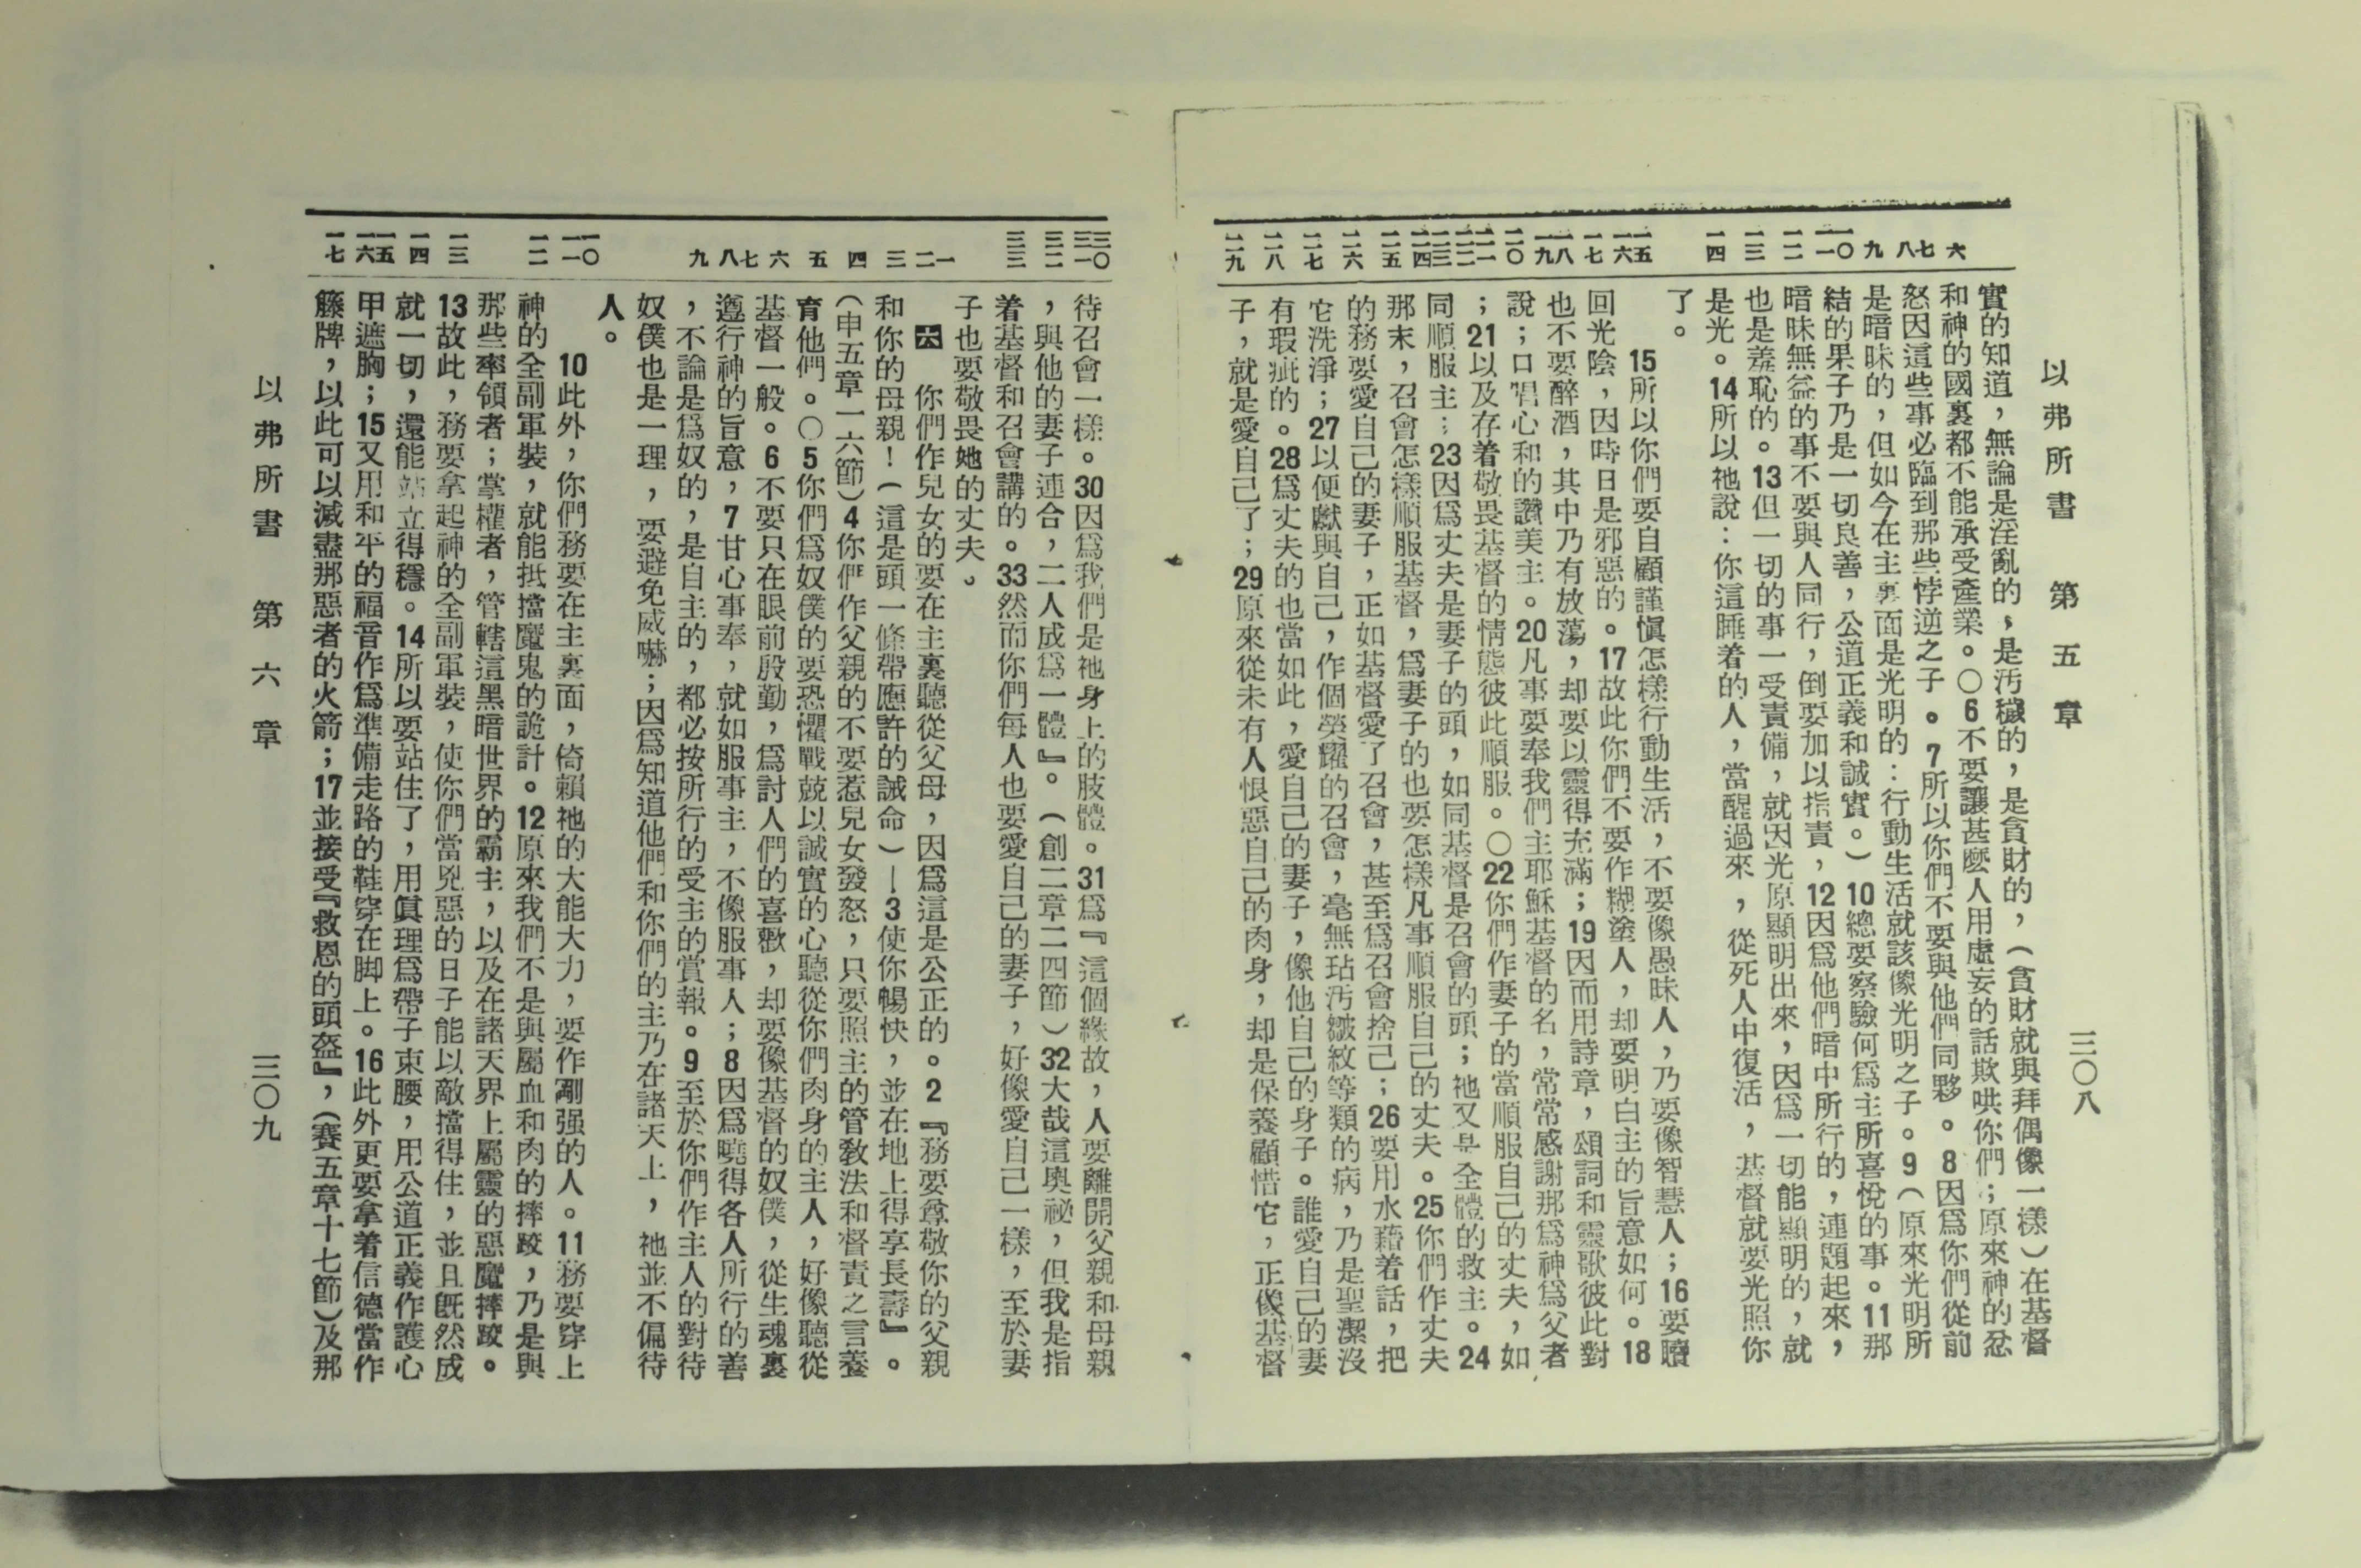 以弗所書 第五章 三〇八
六
七
八
九
一〇
一一
一二
一三
一四
一五
一六
一七
一八
一九
二〇
二一
二二
二三
二四
二五
二六
二七
二八
二九
實的知道，無論是淫亂的，是汚穢的，是貪財的，（貪財就與拜偶像一樣）在基督
和神的國裏都不能承受產業。〇6不要讓甚麽人用虛妄的話欺哄你們；原來神的忿
怒因這些事必臨到那些悖逆之子。7所以你們不要與他們同夥。8因爲你們從前
是暗昧的，但如今在主裏面是光明的：行動生活就該像光明之子。9（原來光明所
結的果子乃是一切良善，公道正義和誠實。）10總要察驗何爲主所喜悅的事。11那
暗昧無益的事不要與人同行，倒要加以指責，12因爲他們暗中所行的，連題起來，
也是羞恥的。13但一切的事一受責備，就因光原顯明出來，因爲一切能顯明的，就
是光。14所以祂說：你這睡着的人，當醒過來，從死人中復活，基督就要光照你
了。
15所以你們要自顧謹愼怎樣行動生活，不要像愚昧人，乃要像智慧人；16要贖
回光陰，因時日是邪惡的。17故此你們不要作糊塗人，却要明白主的旨意如何。18
也不要醉酒，其中乃有放蕩，却要以靈得充滿；19因而用詩章，頌詞和靈歌彼此對
說；口唱心和的讚美主。20凡事要奉我們主耶穌基督的名，常常感謝那爲神爲父者
；21以及存着敬畏基督的情態彼此順服。〇22你們作妻子的當順服自己的丈夫，如
同順服主；23因爲丈夫是妻子的頭，如同基督是召會的頭；祂又是全體的救主。24
那末，召會怎樣順服基督，爲妻子的也要怎樣凡事順服自己的丈夫。25你們作丈夫
的務要愛自己的妻子，正如基督愛了召會，甚至爲召會捨己；26要用水藉着話，把
它洗淨；27以便獻與自己，作個榮耀的召會，毫無玷汚皺紋等類的病，乃是聖潔沒
有瑕疵的。28爲丈夫的也當如此，愛自己的妻子，像他自己的身子。誰愛自己的妻
子，就是愛自己了；29原來從未有人恨惡自己的肉身，却是保養顧惜它，正像基督
三〇
三一
三二
三三
一
二
三
四
五
六
七
八
九
一〇
一一
一二
一三
一四
一五
一六
一七
待召會一樣。30因爲我們是祂身上的肢體。31爲『這個緣故，人要離開父親和母親
，與他的妻子連合，二人成爲一體』。（創二章二四節）32大哉這奧祕，但我是指
着基督和召會講的。33然而你們每人也要愛自己的妻子，好像愛自己一樣，至於妻
子也要敬畏她的丈夫。
六 你們作兒女的要在主裏聽從父母，因爲這是公正的。2『務要尊敬你的父親
和你的母親！（這是頭一條帶應許的誡命）—3使你暢快，並在地上得享長壽』。
（申五章一六節）4你們作父親的不要惹兒女發怒，只要照主的管敎法和督責之言養
育他們。〇5你們爲奴僕的要恐懼戰兢以誠實的心聽從你們肉身的主人，好像聽從
基督一般。6不要只在眼前殷勤，爲討人們的喜歡，却要像基督的奴僕，從生魂裏
遵行神的旨意，7甘心事奉，就如服事主，不像服事人；8因爲曉得各人所行的善
，不論是爲奴的，是自主的，都必按所行的受主的賞報。9至於你們作主人的對待
奴僕也是一理，要避免威嚇；因爲知道他們和你們的主乃在諸天上，祂並不偏待
人。
10此外，你們務要在主裏面，倚賴祂的大能大力，要作剛强的人。11務要穿上
神的全副軍裝，就能抵擋魔鬼的詭計。12原來我們不是與屬血和肉的摔跤，乃是與
那些率領者；掌權者，管轄這黑暗世界的霸主，以及在諸天界上屬靈的惡魔摔跤。
13故此，務要拿起神的全副軍裝，使你們當兇惡的日子能以敵擋得住，並且旣然成
就一切，還能站立得穩。14所以要站住了，用眞理爲帶子束腰，用公道正義作護心
甲遮胸；15又用和平的福音作爲準備走路的鞋穿在脚上。16此外更要拿着信德當作
籐牌，以此可以滅盡那惡者的火箭；17並接受『救恩的頭盔』，（賽五章十七節）及那
以弗所書 第六章 三〇九